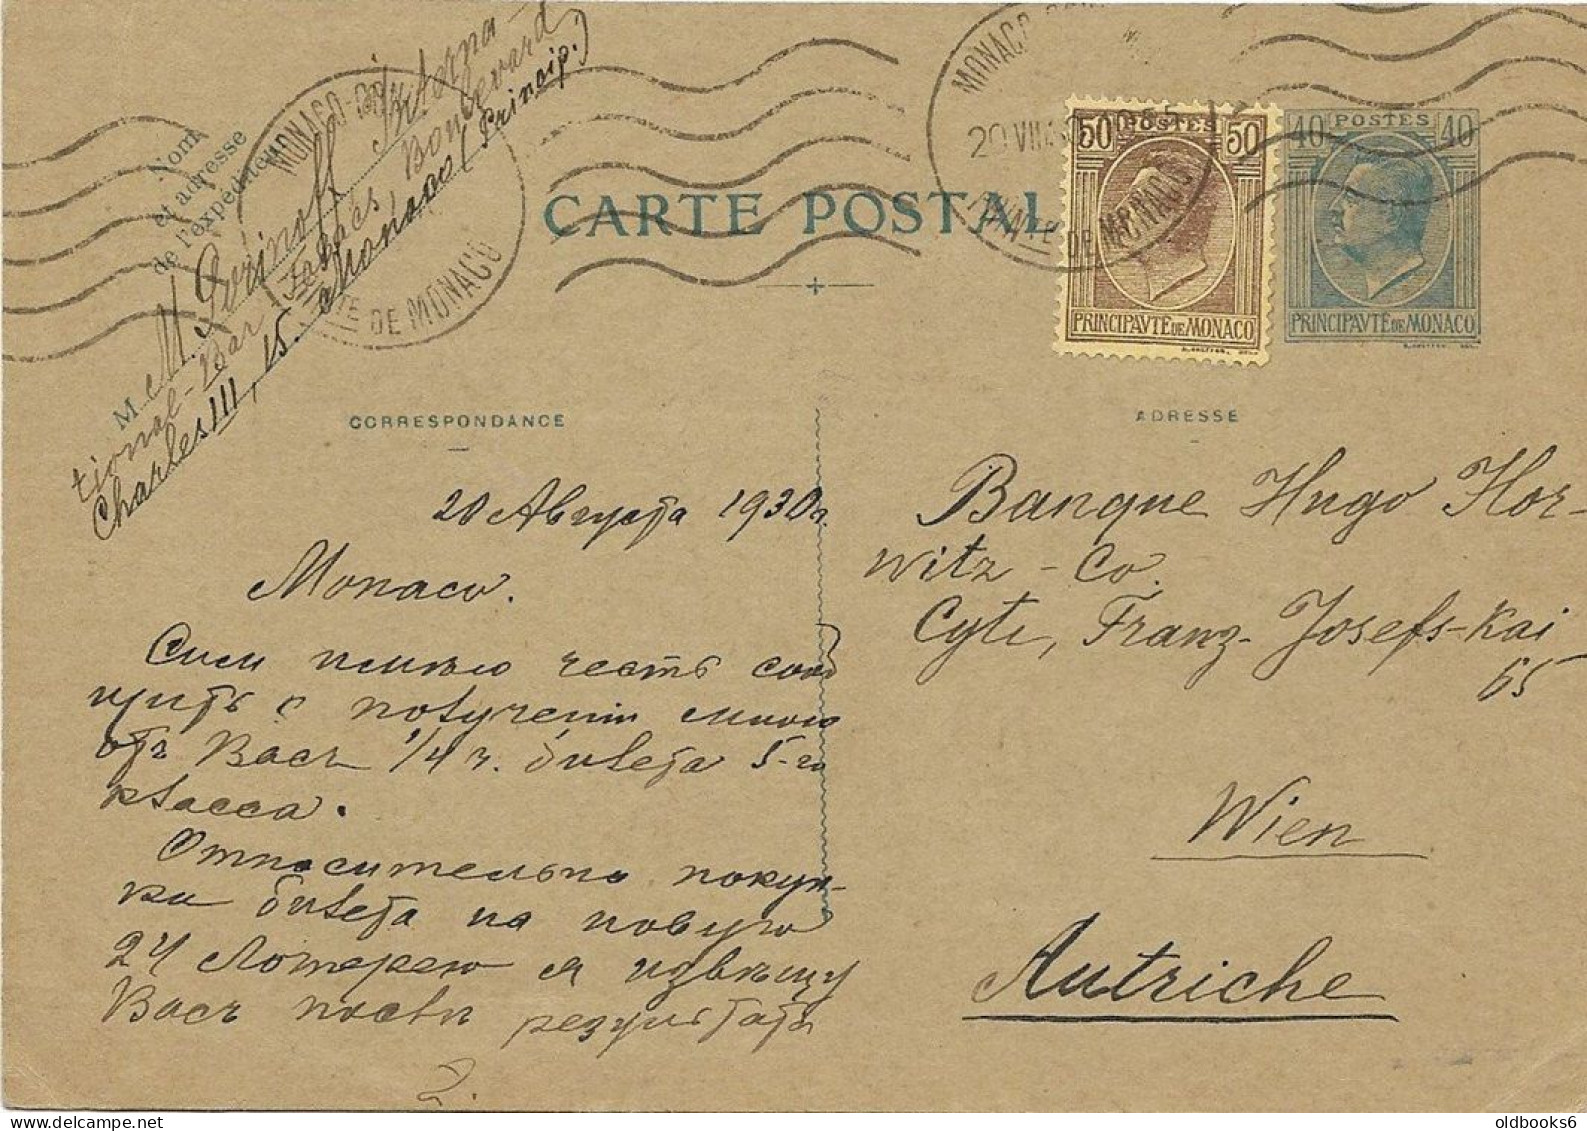 Nom
et adresse
de l'expéditeur
M M. Gorinoff Interna-
tional-Bar-Tabacs, Boulevard
Charles III, 15. Monaco (Princip.)
MONACO-
MONACO
DE MONACO
20 VII
POINTE DE MONACO
CARTE POSTAL
50 POSTES 50
PRINCIPAVTÉ DE MONACO
40 POSTES 40
PRINCIPAVTÉ DE MONACO
CORRESPONDANCE
ADRESSE
20 Августа 1930 г.
Monaco.
Сим имѣю честь сооб
щить о полученіи мною
отъ Васъ 1/4 ч. билета 5-го
класса.
Относительно покуп-
ки билета на новую
24 Лотерею я извѣщу
Васъ послѣ результата
2.
Banque Hugo Hor-
witz - Co.
Cyte, Franz-Josefs-Kai
65
Wien
Autriche
oldbooks6